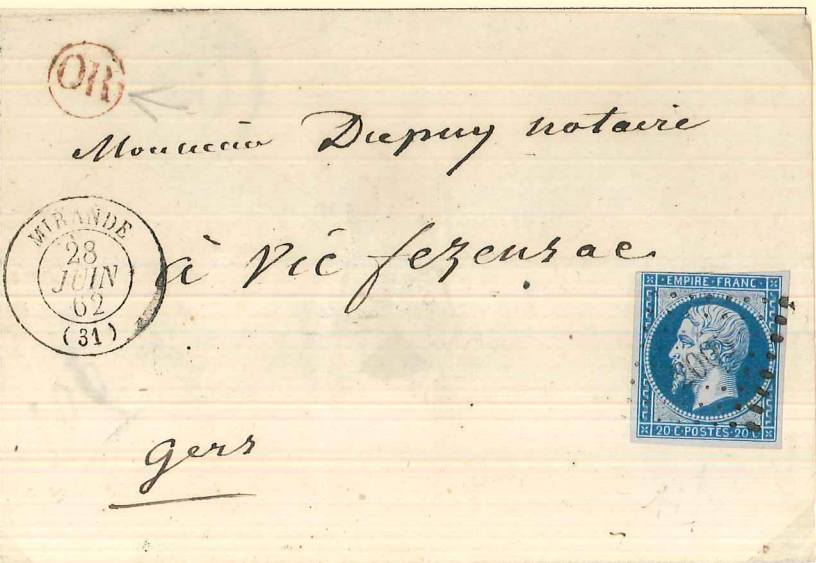 OR
Monsieur Dupuy notaire
MIRANDE
28
JUIN
62
(31)
à Vic fezenzac
EMPIRE · FRANC
20 C · POSTES · 20 C
Gers